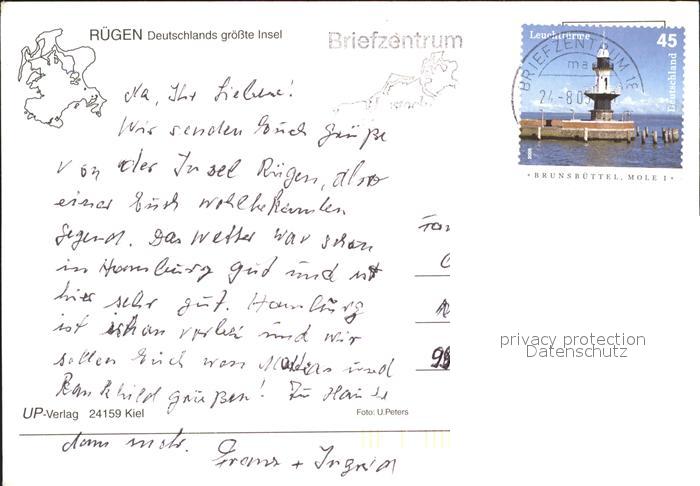 RÜGEN Deutschlands größte Insel
Briefzentrum
Leuchttürme 45
Deutschland
BRIEFZENTRUM 18
ma
24.-8.05
BRUNSBÜTTEL, MOLE 1
Na, Ihr Lieben!
Wir senden Euch Grüße
von der Insel Rügen, also
einer Euch wohlbekannten
Gegend. Das Wetter war schon
in Hamburg gut und ist
hier sehr gut. Hamburg
ist schon vorbei und wir
sollen Euch von und
grüßen! Zu Hause
UP-Verlag 24159 Kiel
Foto: U.Peters
dann mehr.
Franz + Ingrid
privacy protection
Datenschutz